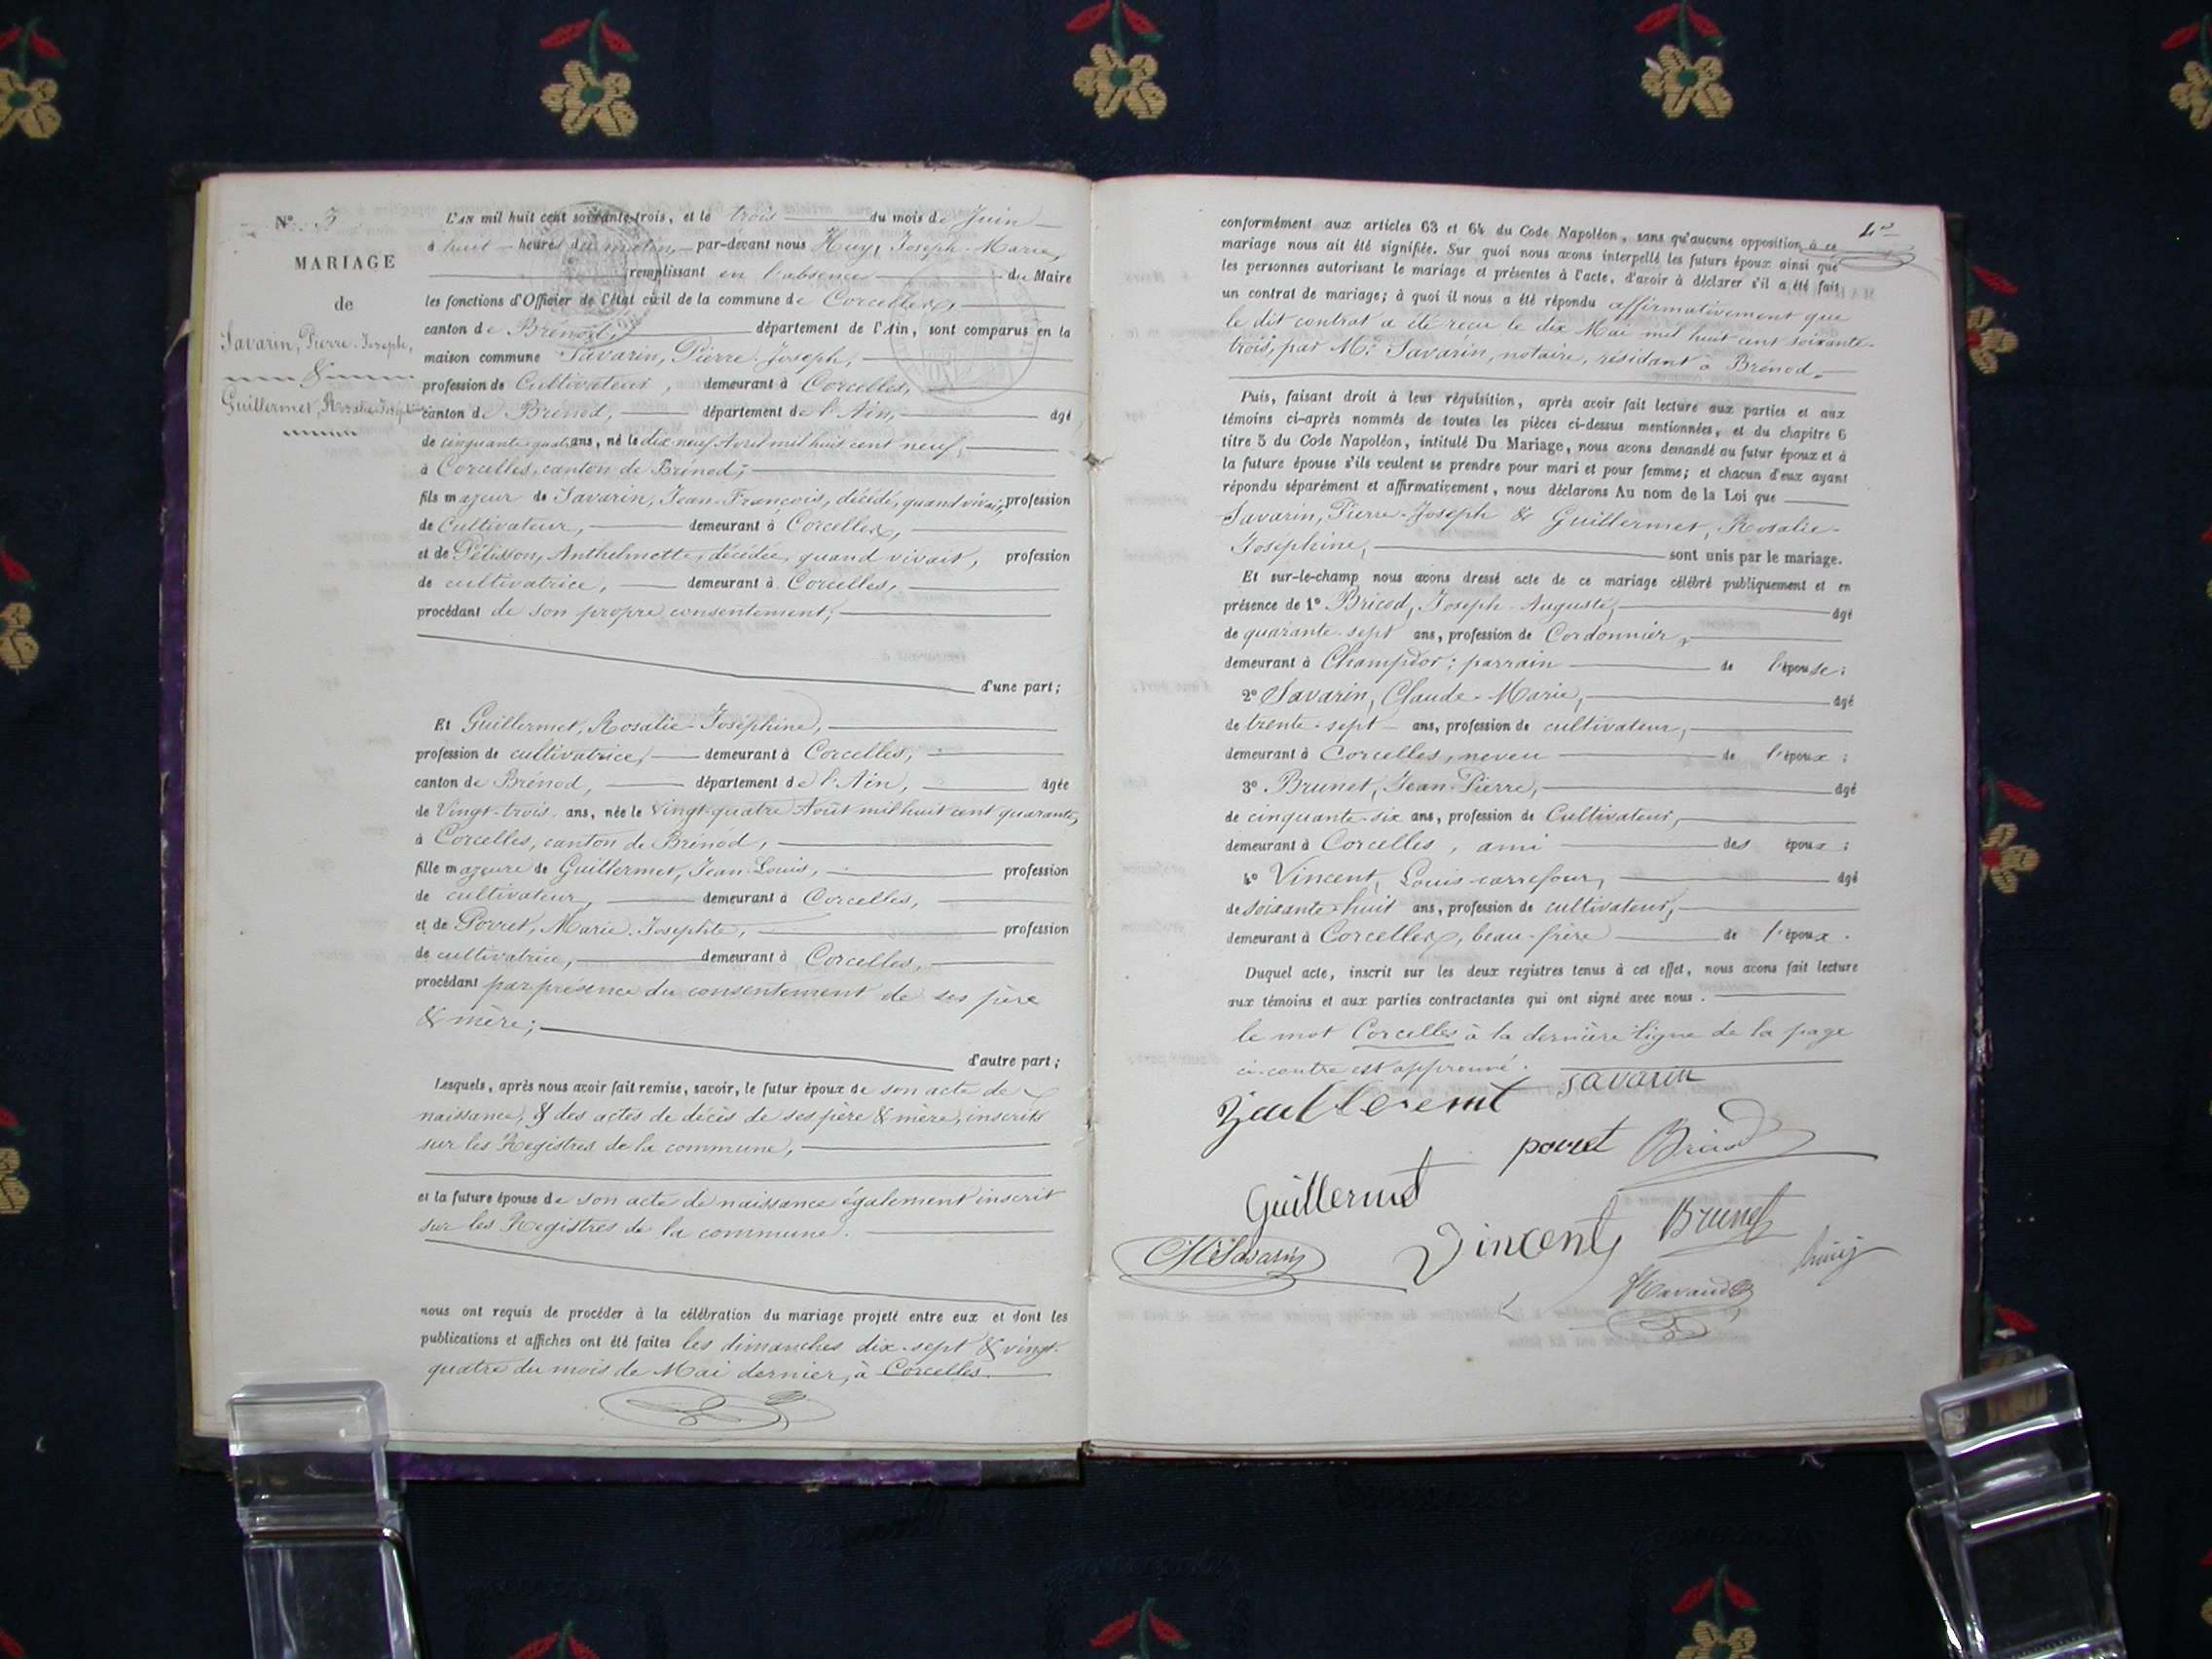 N° 3
MARIAGE
de
Savarin, Pierre-Joseph,
&
Guillermet, Rosalie-Joséphine
L'AN mil huit cent soixante-trois, et le trois du mois de Juin
à huit heures du matin, par-devant nous Huy, Joseph-Marie,
remplissant en l'absence du Maire
les fonctions d'Officier de l'état civil de la commune de Corcelles,
canton de Brénod, département de l'Ain, sont comparus en la
maison commune Savarin, Pierre-Joseph,
profession de Cultivateur, demeurant à Corcelles,
canton de Brénod, département de l'Ain, âgé
de cinquante-quatre ans, né le dix neuf Avril mil huit cent neuf,
à Corcelles, canton de Brénod;
fils majeur de Savarin, Jean-François, décédé, quand vivait, profession
de Cultivateur, demeurant à Corcelles,
et de Pélisson, Anthelmette, décédée, quand vivait, profession
de cultivatrice, demeurant à Corcelles,
procédant de son propre consentement;
d'une part;
Et Guillermet, Rosalie-Joséphine,
profession de cultivatrice, demeurant à Corcelles,
canton de Brénod, département de l'Ain, âgée
de Vingt-trois ans, née le Vingt-quatre Août mil huit cent quarante,
à Corcelles, canton de Brénod,
fille majeure de Guillermet, Jean-Louis, profession
de cultivateur, demeurant à Corcelles,
et de Porret, Marie-Josephte, profession
de cultivatrice, demeurant à Corcelles,
procédant par présence du consentement de ses père
& mère;
d'autre part;
Lesquels, après nous avoir fait remise, savoir, le futur époux de son acte de
naissance, & des actes de décès de ses père & mère, inscrits
sur les Registres de la commune,
et la future épouse de son acte de naissance également inscrit
sur les Registres de la commune.
nous ont requis de procéder à la célébration du mariage projeté entre eux et dont les
publications et affiches ont été faites les dimanches dix-sept & vingt-
quatre du mois de Mai dernier, à Corcelles.
conformément aux articles 63 et 64 du Code Napoléon, sans qu'aucune opposition à ce
mariage nous ait été signifiée. Sur quoi nous avons interpellé les futurs époux ainsi que
les personnes autorisant le mariage et présentes à l'acte, d'avoir à déclarer s'il a été fait
un contrat de mariage; à quoi il nous a été répondu affirmativement que
le dit contrat a été reçu le dix Mai mil huit cent soixante-
trois, par Me Savarin, notaire, résidant à Brénod.
Puis, faisant droit à leur réquisition, après avoir fait lecture aux parties et aux
témoins ci-après nommés de toutes les pièces ci-dessus mentionnées, et du chapitre 6
titre 5 du Code Napoléon, intitulé Du Mariage, nous avons demandé au futur époux et à
la future épouse s'ils veulent se prendre pour mari et pour femme; et chacun d'eux ayant
répondu séparément et affirmativement, nous déclarons Au nom de la Loi que
Savarin, Pierre-Joseph & Guillermet, Rosalie-
Joséphine, sont unis par le mariage.
Et sur-le-champ nous avons dressé acte de ce mariage célébré publiquement et en
présence de 1° Bricod, Joseph-Auguste, âgé
de quarante-sept ans, profession de Cordonnier,
demeurant à Champdor; parrain de l'épouse;
2° Savarin, Claude-Marie, âgé
de trente-sept ans, profession de cultivateur,
demeurant à Corcelles, neveu de l'époux;
3° Brunet, Jean-Pierre, âgé
de cinquante-six ans, profession de Cultivateur,
demeurant à Corcelles, ami des époux;
4° Vincent, Louis-carrefour, âgé
de soixante-huit ans, profession de cultivateur,
demeurant à Corcelles, beau-frère de l'époux.
Duquel acte, inscrit sur les deux registres tenus à cet effet, nous avons fait lecture
aux témoins et aux parties contractantes qui ont signé avec nous.
le mot Corcelles à la dernière ligne de la page
ci-contre est approuvé. Savarin
porret Bricod
Guillermet
Vincent Brunet
Savarin
huy